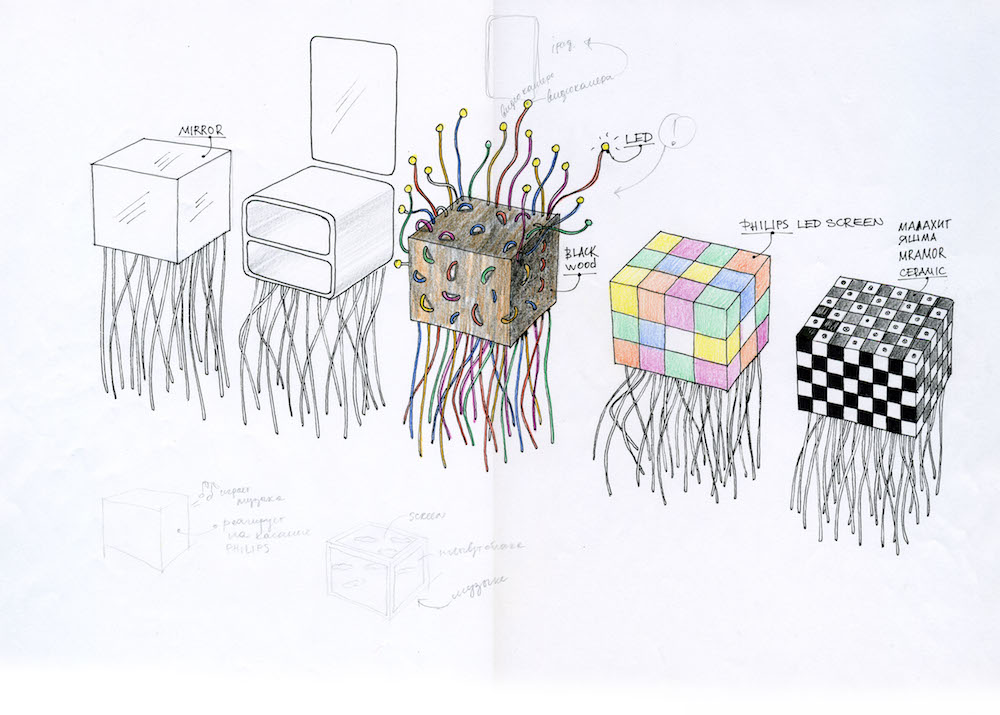 ipag.
видеокамера
видеокамера
MIRROR
LED
!
BLACK
WOOD
PHILIPS LED SCREEN
МАЛАХИТ
ЯШМА
MRAMOR
CERAMIC
играет
музыка
реагирует
на касание
PHILIPS
SCREEN
музыка